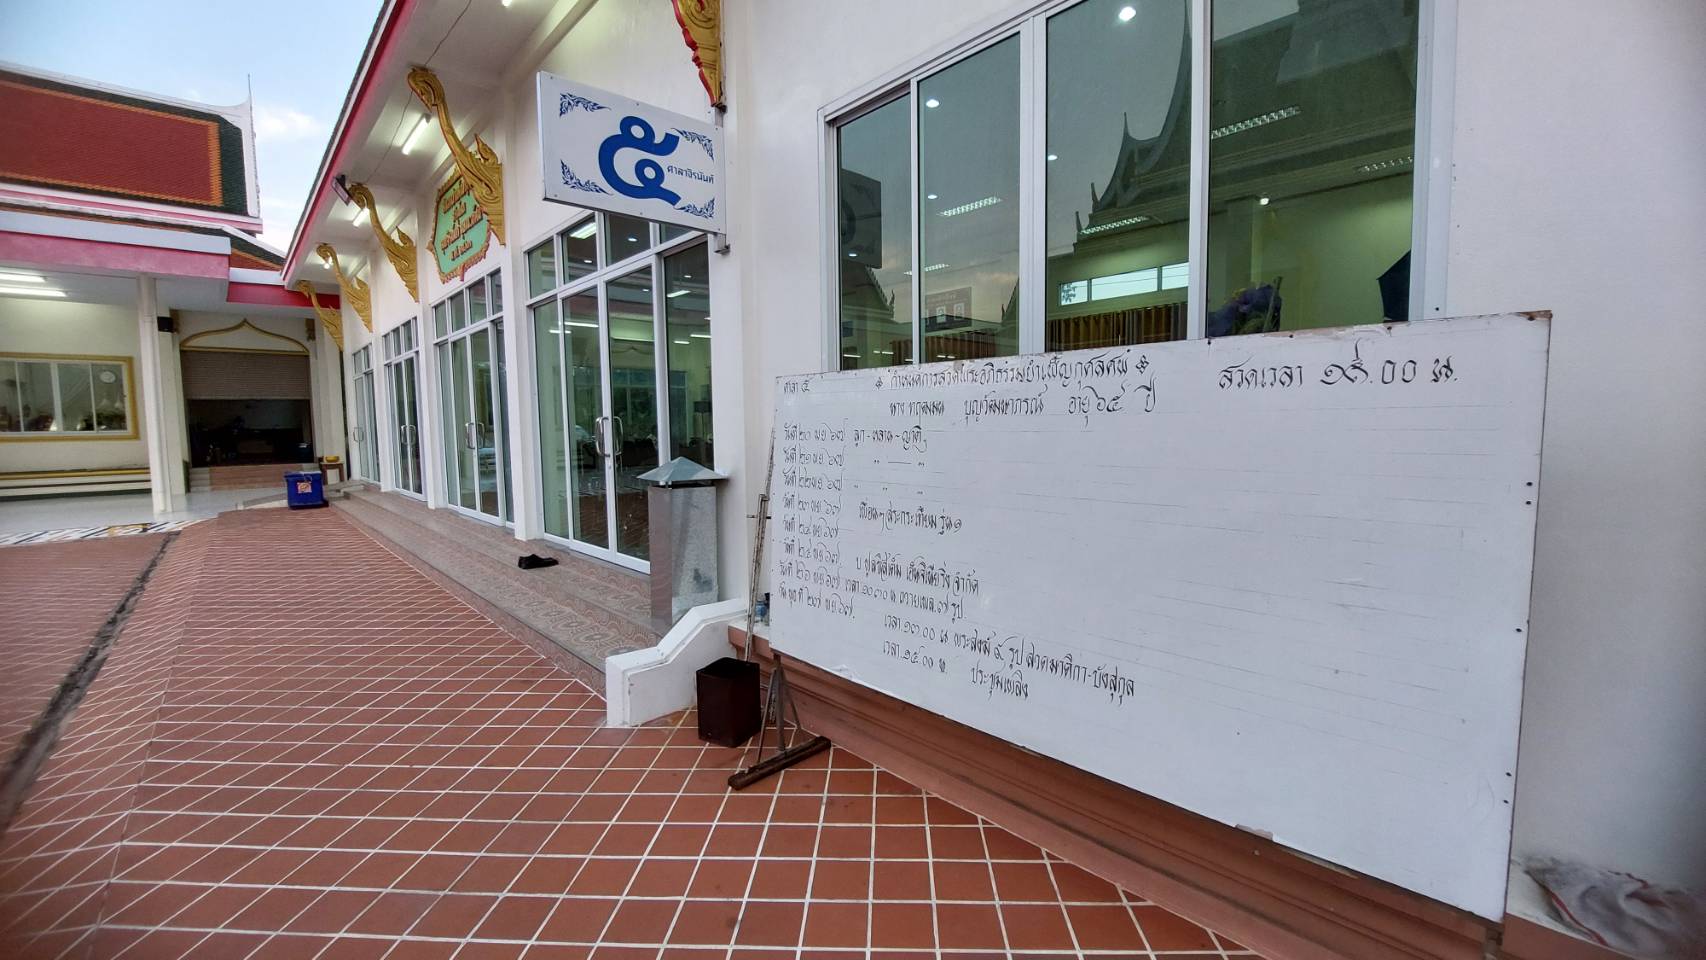 ๕
ศาลาจิรนันท์
ศาลา ๕ กำหนดการสวดพระอภิธรรมบำเพ็ญกุศลศพ สวดเวลา ๑๙.๐๐ น.
นาย บุญวัฒนาภรณ์ อายุ ๖๕ ปี
วันที่ ๒๐ พย ๖๗ ลูก - หลาน - ญาติๆ
วันที่ ๒๑ พย ๖๗ " — "
วันที่ ๒๒ พย ๖๗ " " "
วันที่ ๒๓ พย ๖๗ เพื่อนๆ สระกระเทียม รุ่น ๑
วันที่ ๒๔ พย ๖๗
วันที่ ๒๕ พย ๖๗ บ. เอ็นจิเนียริ่ง จำกัด
วันที่ ๒๖ พย ๖๗ เวลา ๑๐.๓๐ น ถวายเพล ๗ รูป
วันพุธ ที่ ๒๗ พย ๖๗. เวลา ๑๓.๐๐ น พระสงฆ์ ๙ รูป สวดมาติกา - บังสุกุล
เวลา ๑๕.๐๐ น ประชุมเพลิง